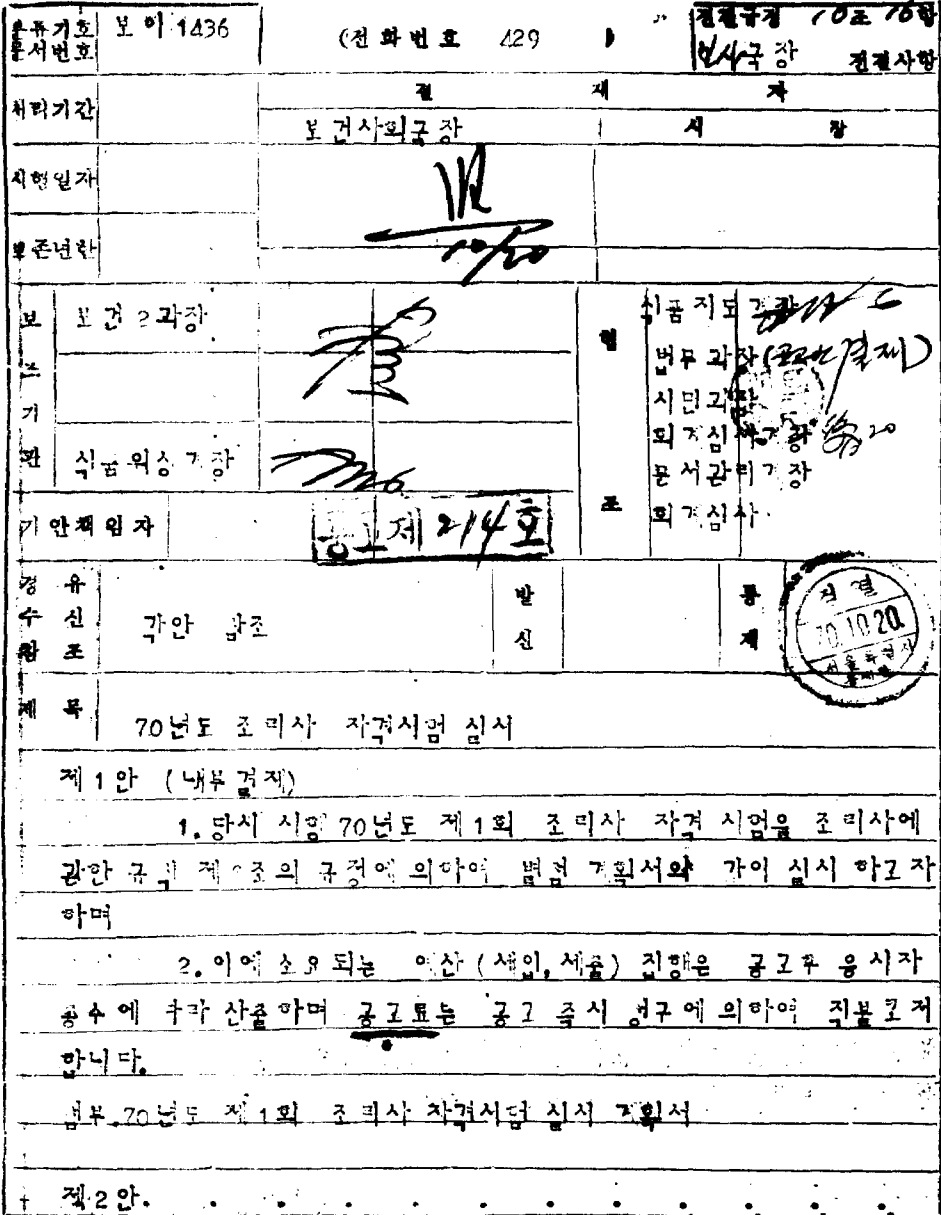 분류기호 문서번호 보이 1436 (전화번호 429) 전결규정 10조 16항
국장 전결사항
처리기간 결재자
보건사회국장 시장
시행일자
10/20
보존년한
보조기관 보건2과장 협조 식품지도계장
법무과장 (결재)
시민과장
회계심사계장 20
식품위생계장 문서관리계장
회계심사
기안책임자 공고제 214 호
경유 수신 참조 각안 참조 발신 통제 직결 70.10.20. 서울특별시
제목 70년도 조리사 자격시험 실시
제1안 (내부결재)
1. 당시 시행 70년도 제1회 조리사 자격 시험을 조리사에
관한 규칙 제 조의 규정에 의하여 별첨 계획서와 가이 실시 하고자
하며
2. 이에 소요되는 예산 (세입, 세출) 집행은 공고후 응시자
총수에 따라 산출하며 공고료는 공고 즉시 청구에 의하여 직불코저
합니다.
첨부.70년도 제1회 조리사 자격시험 실시 계획서
제2안. . . . . . . . . .